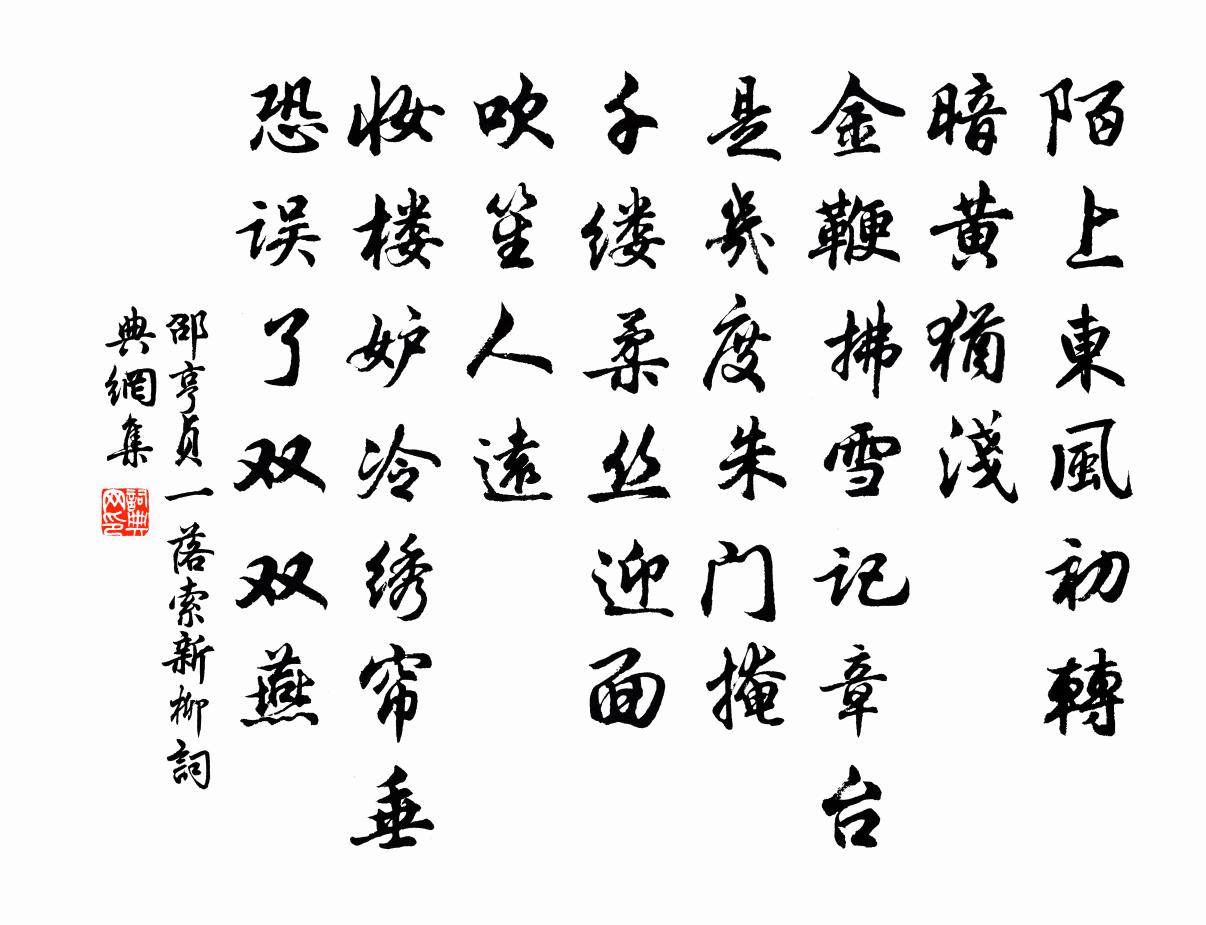 陌上東風初轉
暗黄猶淺
金鞭拂雪记章台
是幾度朱门掩
千缕柔丝迎面
吹笙人遠
妆楼妒冷绣帘垂
恐误了双双燕
邵亨貞一落索新柳詞
典網集
詞典网印